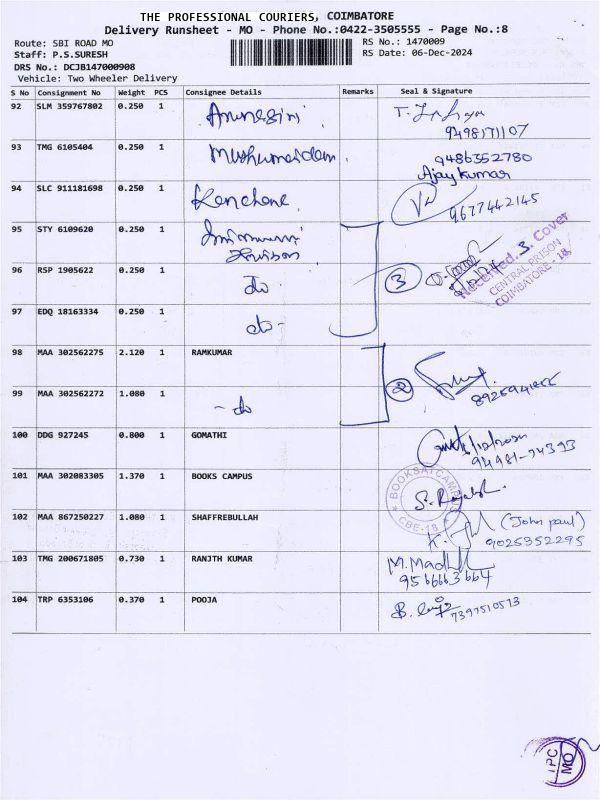 THE PROFESSIONAL COURIERS, COIMBATORE
Delivery Runsheet - MO - Phone No.:0422-3505555 - Page No.:8
Route: SBI ROAD MO
RS No.: 1470009
Staff: P.S.SURESH
RS Date: 06-Dec-2024
DRS No.: DCJB147000908
Vehicle: Two Wheeler Delivery
S No Consignment No Weight PCS Consignee Details Remarks Seal & Signature
92 SLM 359767802 0.250 1
9498171107
93 TMG 6105404 0.250 1
9486352780
Ajay Kumar
94 SLC 911181698 0.250 1
9677442145
95 STY 6109620 0.250 1
96 RSP 1905622 0.250 1 do
3
Received. 3. Cover
CENTRAL PRISON
COIMBATORE - 18.
97 EDQ 18163334 0.250 1 do -
98 MAA 302562275 2.120 1 RAMKUMAR
99 MAA 302562272 1.080 1 - do
2
100 DDG 927245 0.800 1 GOMATHI
94981-74393
101 MAA 302083305 1.370 1 BOOKS CAMPUS
CBE-18
102 MAA 867250227 1.080 1 SHAFFREBULLAH
(John paul)
9025352295
103 TMG 200671805 0.730 1 RANJTH KUMAR
9566663664
104 TRP 6353106 0.370 1 POOJA
7397510573
TPC
MO